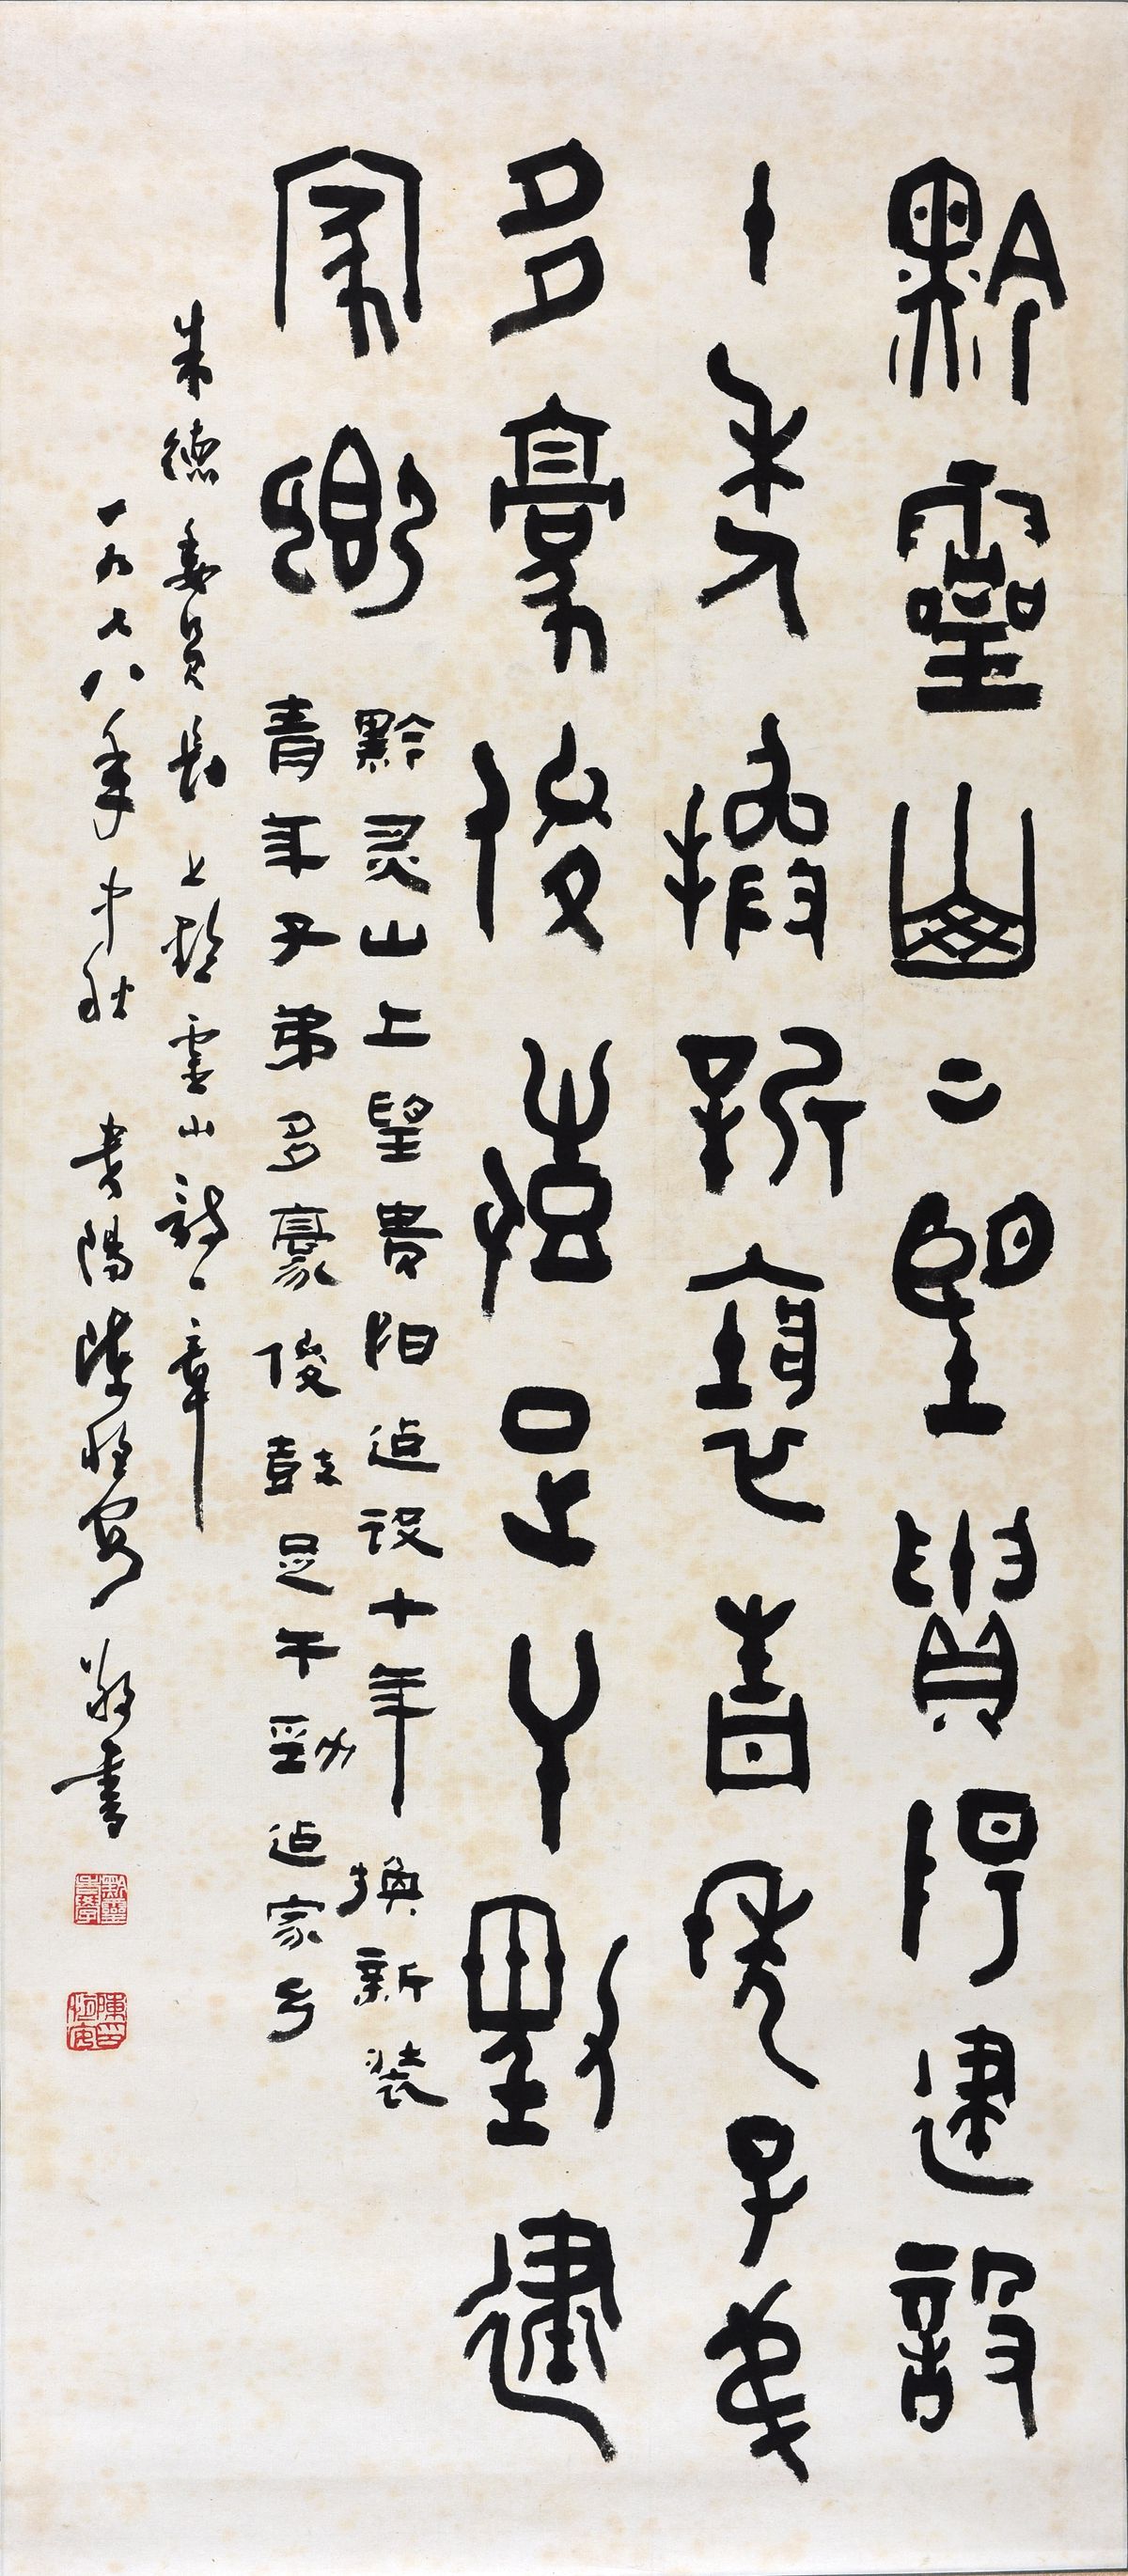 黔靈山上望貴陽建設
十年換新裝青年子弟
多豪俊鼓足干勁建
家鄉
黔灵山上望贵阳迠设十年换新装
青年子弟多豪俊鼓足干勁迠家乡
朱德委員長上黔靈山詩一章
一九七八年中秋 貴陽陳恒安敬書
陳印恒安